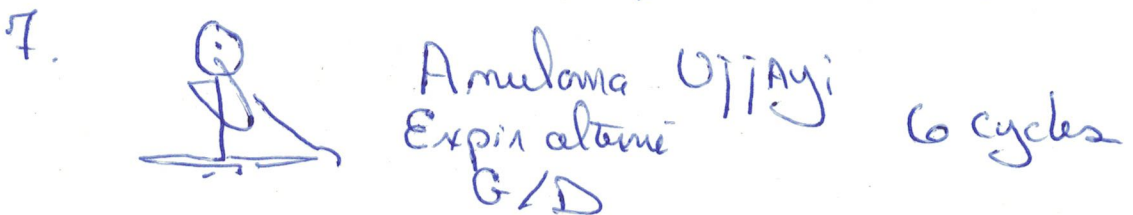 7.
Anuloma Ujjayi
Expir alterné 6 cycles
G/D